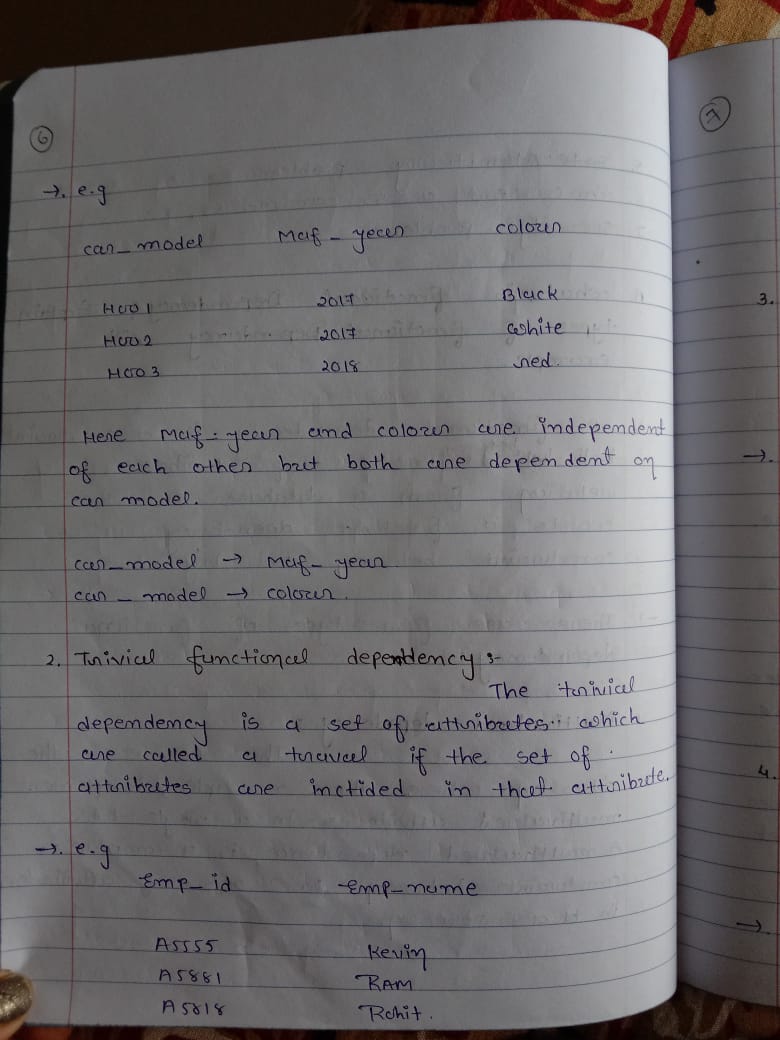 6
→. e.g
car_model Maf-year colour
H001 2017 Black
H002 2017 White
H003 2018 red.
Here Maf-year and colour are independent
of each other but both are dependent on
car model.
car_model → Maf-year
car_model → colour.
2. Trivial functional dependency :-
The trivial
dependency is a set of attributes which
are called a traival if the set of
attributes are inctided in that attribute.
→. e.g
Emp_id Emp_name
AS555 Kevin
AS881 RAM
AS818 Rohit.
7
3.
→.
4.
→.